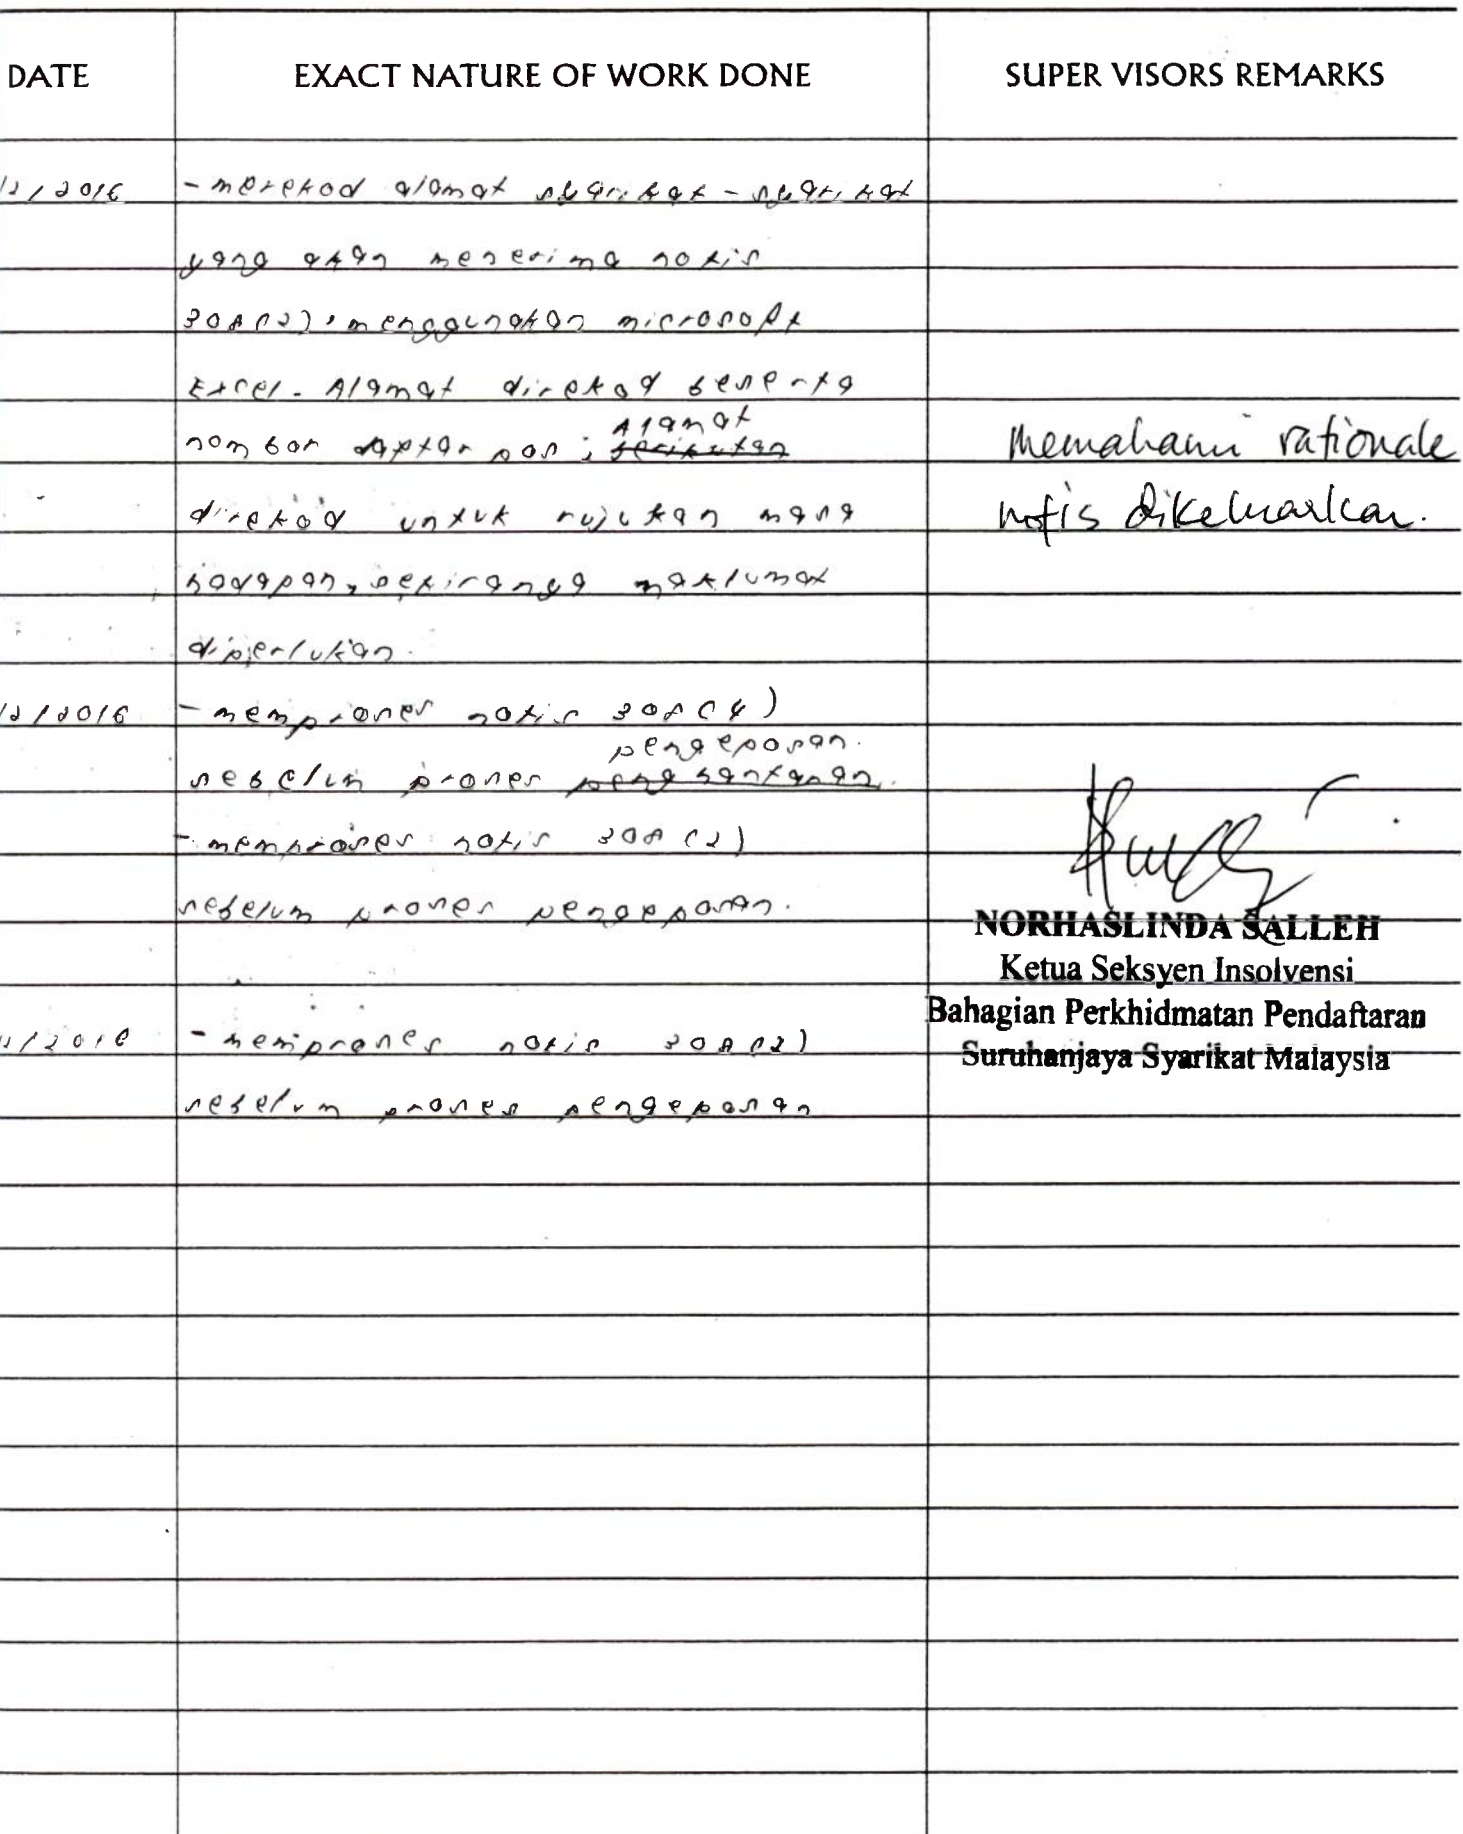 DATE EXACT NATURE OF WORK DONE SUPER VISORS REMARKS
12/2016 - merekod alamat syarikat - syarikat
yang akan menerima notis
308(2), menggunakan microsoft
Excel. Alamat direkod beserta
Alamat
nombor daftar pos ;
direkod untuk rujukan masa
hadapan, sekiranya maklumat
diperlukan.
Memahami rationale
notis dikeluarkan.
12/2016 - memproses notis 308(4)
pengeposan.
sebelum proses penghantaran.
- memproses notis 308(2)
sebelum proses pengeposan.
NORHASLINDA SALLEH
Ketua Seksyen Insolvensi
Bahagian Perkhidmatan Pendaftaran
Suruhanjaya Syarikat Malaysia
2/2016 - memproses notis 308(2)
sebelum proses pengeposan